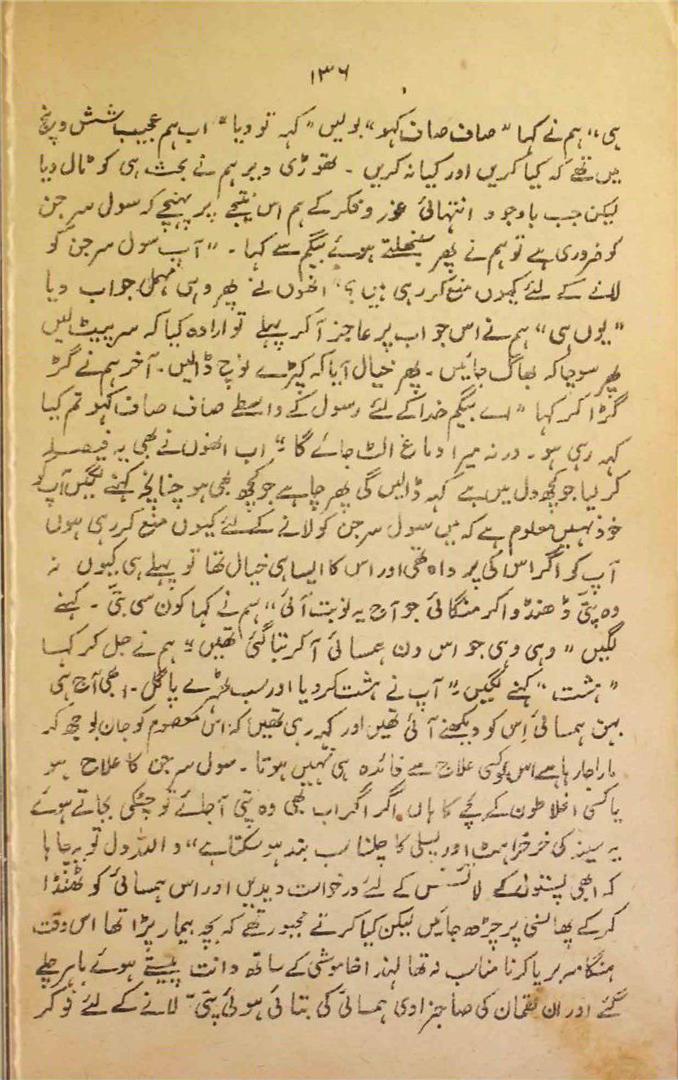 ۱۳۶
ہی“ ہم نے کہا ”صاف صاف کہو“ بولیں ”کہہ تو دیا“ اب ہم عجیب شش و پنج
میں تھے کہ کیا کریں اور کیا نہ کریں ۔ تھوڑی دیر ہم نے بحث ہی کو ٹال دیا
لیکن جب باوجود انتہائی غور و فکر کے ہم اس نتیجے پر پہنچے کہ سول سرجن
کو ضروری ہے تو ہم نے پھر سنبھلتے ہوئے بیگم سے کہا ۔ ”آپ سول سرجن کو
لانے کے لئے کیوں منع کر رہی ہیں ؟“ انھوں نے پھر وہی مہمل جواب دیا
”یوں ہی“ ہم نے اس جواب پر عاجز آکر پہلے تو ارادہ کیا کہ سر پیٹ لیں
پھر سوچا کہ بھاگ جائیں ۔ پھر خیال آیا کہ کپڑے نوچ ڈالیں ۔ آخر ہم نے گڑ
گڑا کر کہا ”اے بیگم خدا کے لئے رسول کے واسطے صاف صاف کہو تم کیا
کہہ رہی ہو ۔ ورنہ میرا دماغ الٹ جائے گا“ اب انھوں نے بھی یہ فیصلہ
کر لیا جو کچھ دل میں ہے کہہ ڈالیں گی پھر چاہے جو کچھ بھی ہو چنانچہ کہنے لگیں آپ کو
خود نہیں معلوم ہے کہ میں سول سرجن کو لانے کے لئے کیوں منع کر رہی ہوں
آپ کو اگر اس کی پرواہ تھی اور اس کا ایسا ہی خیال تھا تو پہلے ہی کیوں نہ
وہ پتی ڈھنڈوا کر منگائی جو آج یہ نوبت آئی“ ہم نے کہا کون سی پتی ۔ کہنے
لگیں ”وہی وہی جو اس دن ہمسائی آکر بتا گئی تھیں“ ہم نے جل کر کہا
”ہشت“ کہنے لگیں ”آپ نے ہشت کر دیا اور سب ٹھہرے پاگل ۔ ابھی آج ہی
بہن ہمسائی اِس کو دیکھنے آئی تھیں اور کہہ رہی تھیں کہ اس معصوم کو جان بوجھ کر
مارا جا رہا ہے اس کو کسی علاج سے فائدہ ہی نہیں ہوتا ۔ سول سرجن کا علاج ہو
یا کسی افلاطون کے بچے کا ہاں اگر اب بھی وہ پتی آ جائے تو چٹکی بجاتے ہوئے
یہ سینہ کی خرخراہٹ اور پسلی کا چلنا سب بند ہو سکتا ہے“ واللہ دل تو یہ چاہا
کہ ابھی پستول کے لائسنس کے لئے درخواست دیدیں اور اس ہمسائی کو ٹھنڈا
کر کے پھانسی پر چڑھ جائیں لیکن کیا کرتے مجبور تھے کہ بچہ بیمار پڑا تھا اس وقت
ہنگامہ برپا کرنا مناسب نہ تھا لہٰذا خاموشی کے ساتھ دانت پیستے ہوئے باہر چلے
گئے اور ان لقمان کی صاحبزادی ہمسائی کی بتائی ہوئی پتی لانے کے لئے نوکر